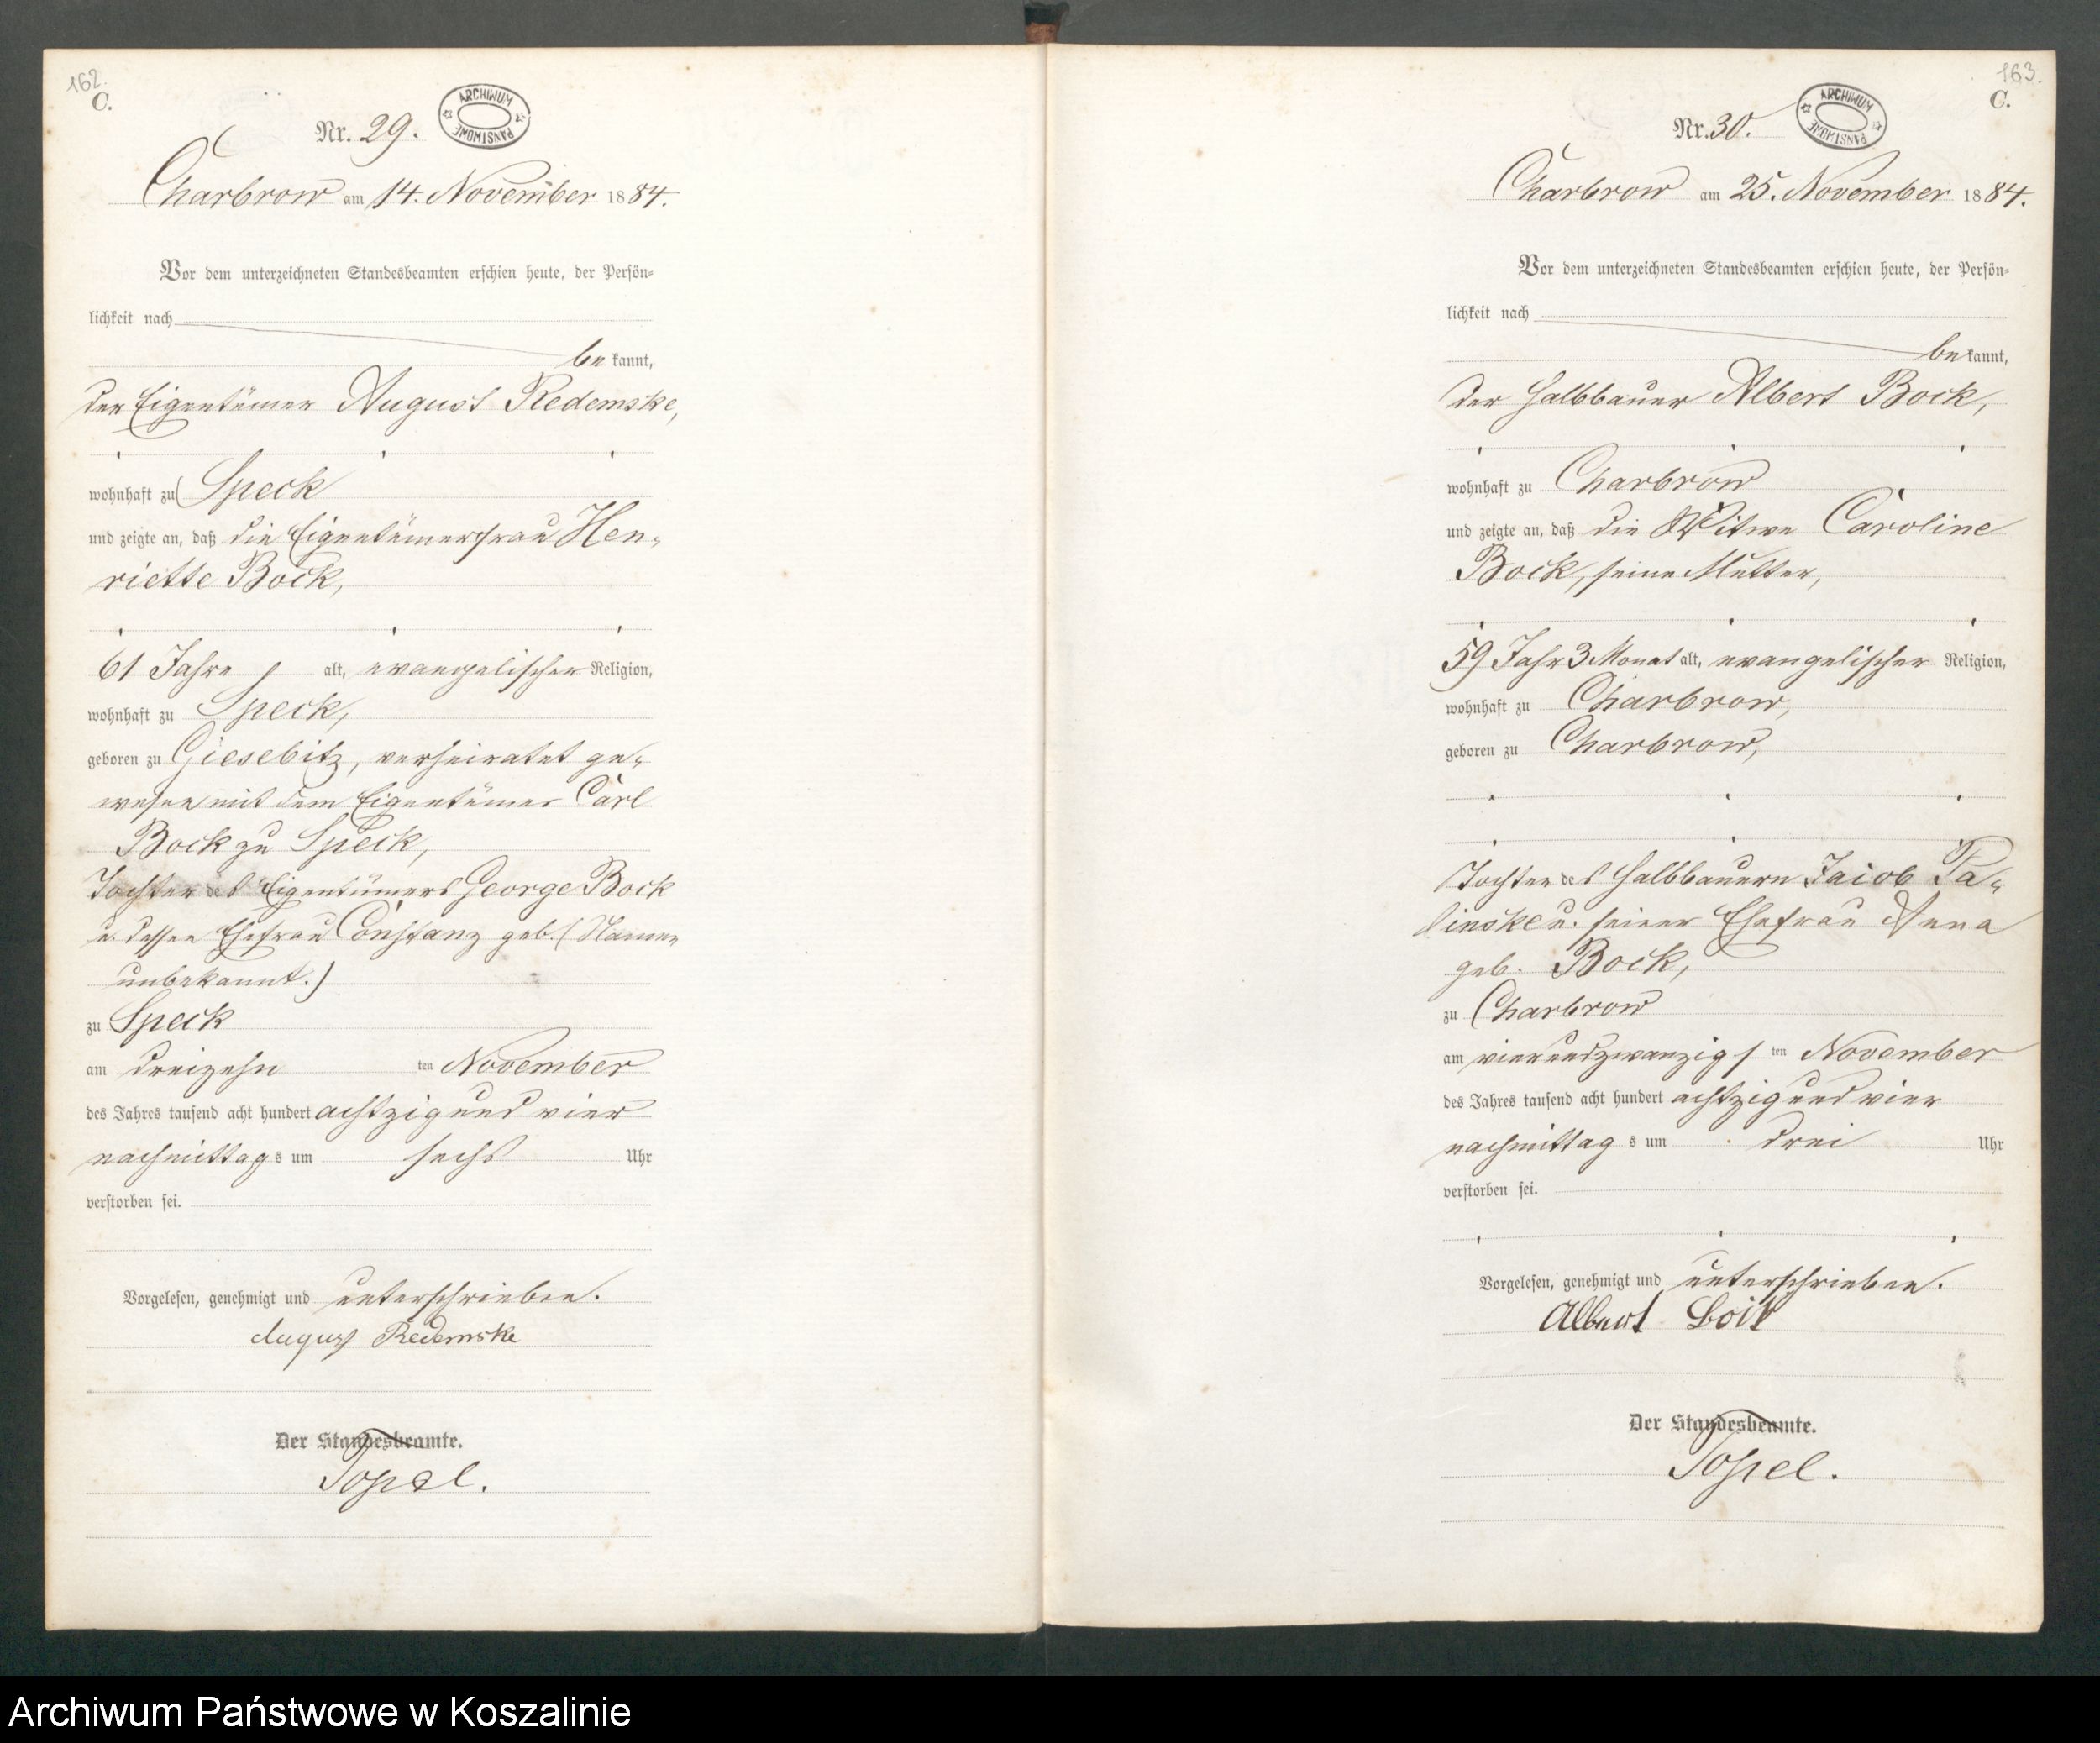 162.
C.
Nr. 29.
ARCHIWUM PAŃSTWOWE
Charbrow am 14. November 1884.
Vor dem unterzeichneten Standesbeamten erschien heute, der Persön=
lichkeit nach
be kannt,
der Eigentümer August Redemske,
wohnhaft zu Speck
und zeigte an, daß die Eigentümerfrau Hen-
riette Bock,
61 Jahre alt, evangelischer Religion,
wohnhaft zu Speck,
geboren zu Giesebitz, verheiratet ge-
wesen mit dem Eigentümer Carl
Bock zu Speck,
Tochter des Eigentümers George Bock
u. dessen Ehefrau Constanz geb. (Namen
unbekannt.)
zu Speck
am dreizehn ten November
des Jahres tausend acht hundert achtzig und vier
nachmittags um sechs Uhr
verstorben sei.
Vorgelesen, genehmigt und unterschrieben.
August Redemske
Der Standesbeamte.
Topel.
163.
C.
Nr. 30.
ARCHIWUM PAŃSTWOWE
Charbrow am 25. November 1884.
Vor dem unterzeichneten Standesbeamten erschien heute, der Persön=
lichkeit nach
be kannt,
der Halbbauer Albert Bock,
wohnhaft zu Charbrow
und zeigte an, daß die Witwe Caroline
Bock, seine Mutter,
59 Jahr 3 Monat alt, evangelischer Religion,
wohnhaft zu Charbrow,
geboren zu Charbrow,
Tochter des Halbbauern Jacob Pa-
linske u. seiner Ehefrau Anna
geb. Bock,
zu Charbrow
am vierundzwanzig ten November
des Jahres tausend acht hundert achtzig und vier
nachmittags um drei Uhr
verstorben sei.
Vorgelesen, genehmigt und unterschrieben.
Albert Bock
Der Standesbeamte.
Topel.
Archiwum Państwowe w Koszalinie